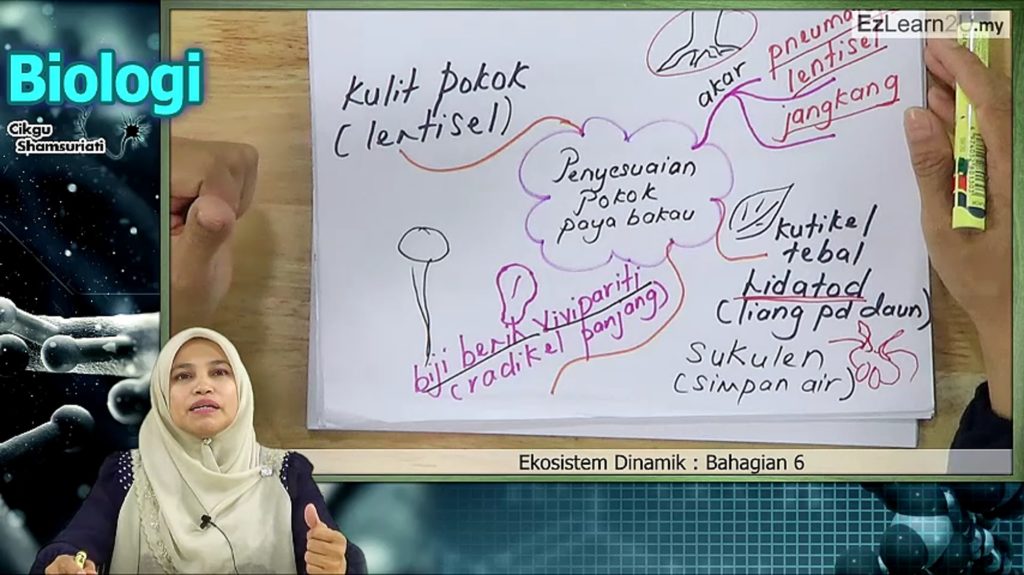 EzLearn2U.my
Biologi
Cikgu
Shamsuriati
Kulit Pokok
(lentisel)
akar
lentisel
jangkang
Penyesuaian
Pokok
paya bakau
kutikel
tebal
Hidatod
(liang pd daun)
Sukulen
(simpan air)
biji benih vivipariti
(radikel panjang)
Ekosistem Dinamik : Bahagian 6